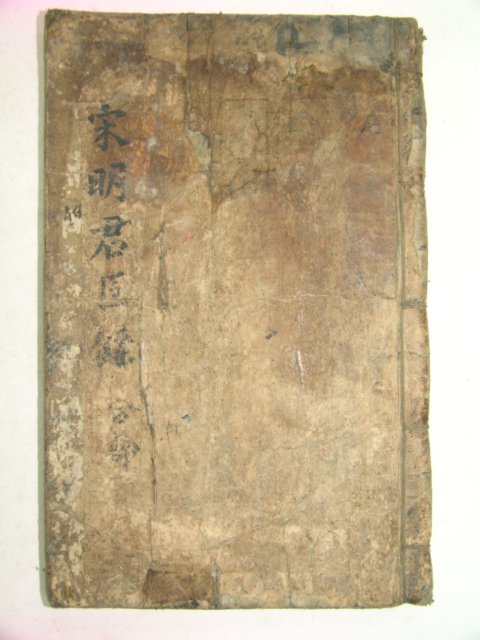 宋明君臣錄